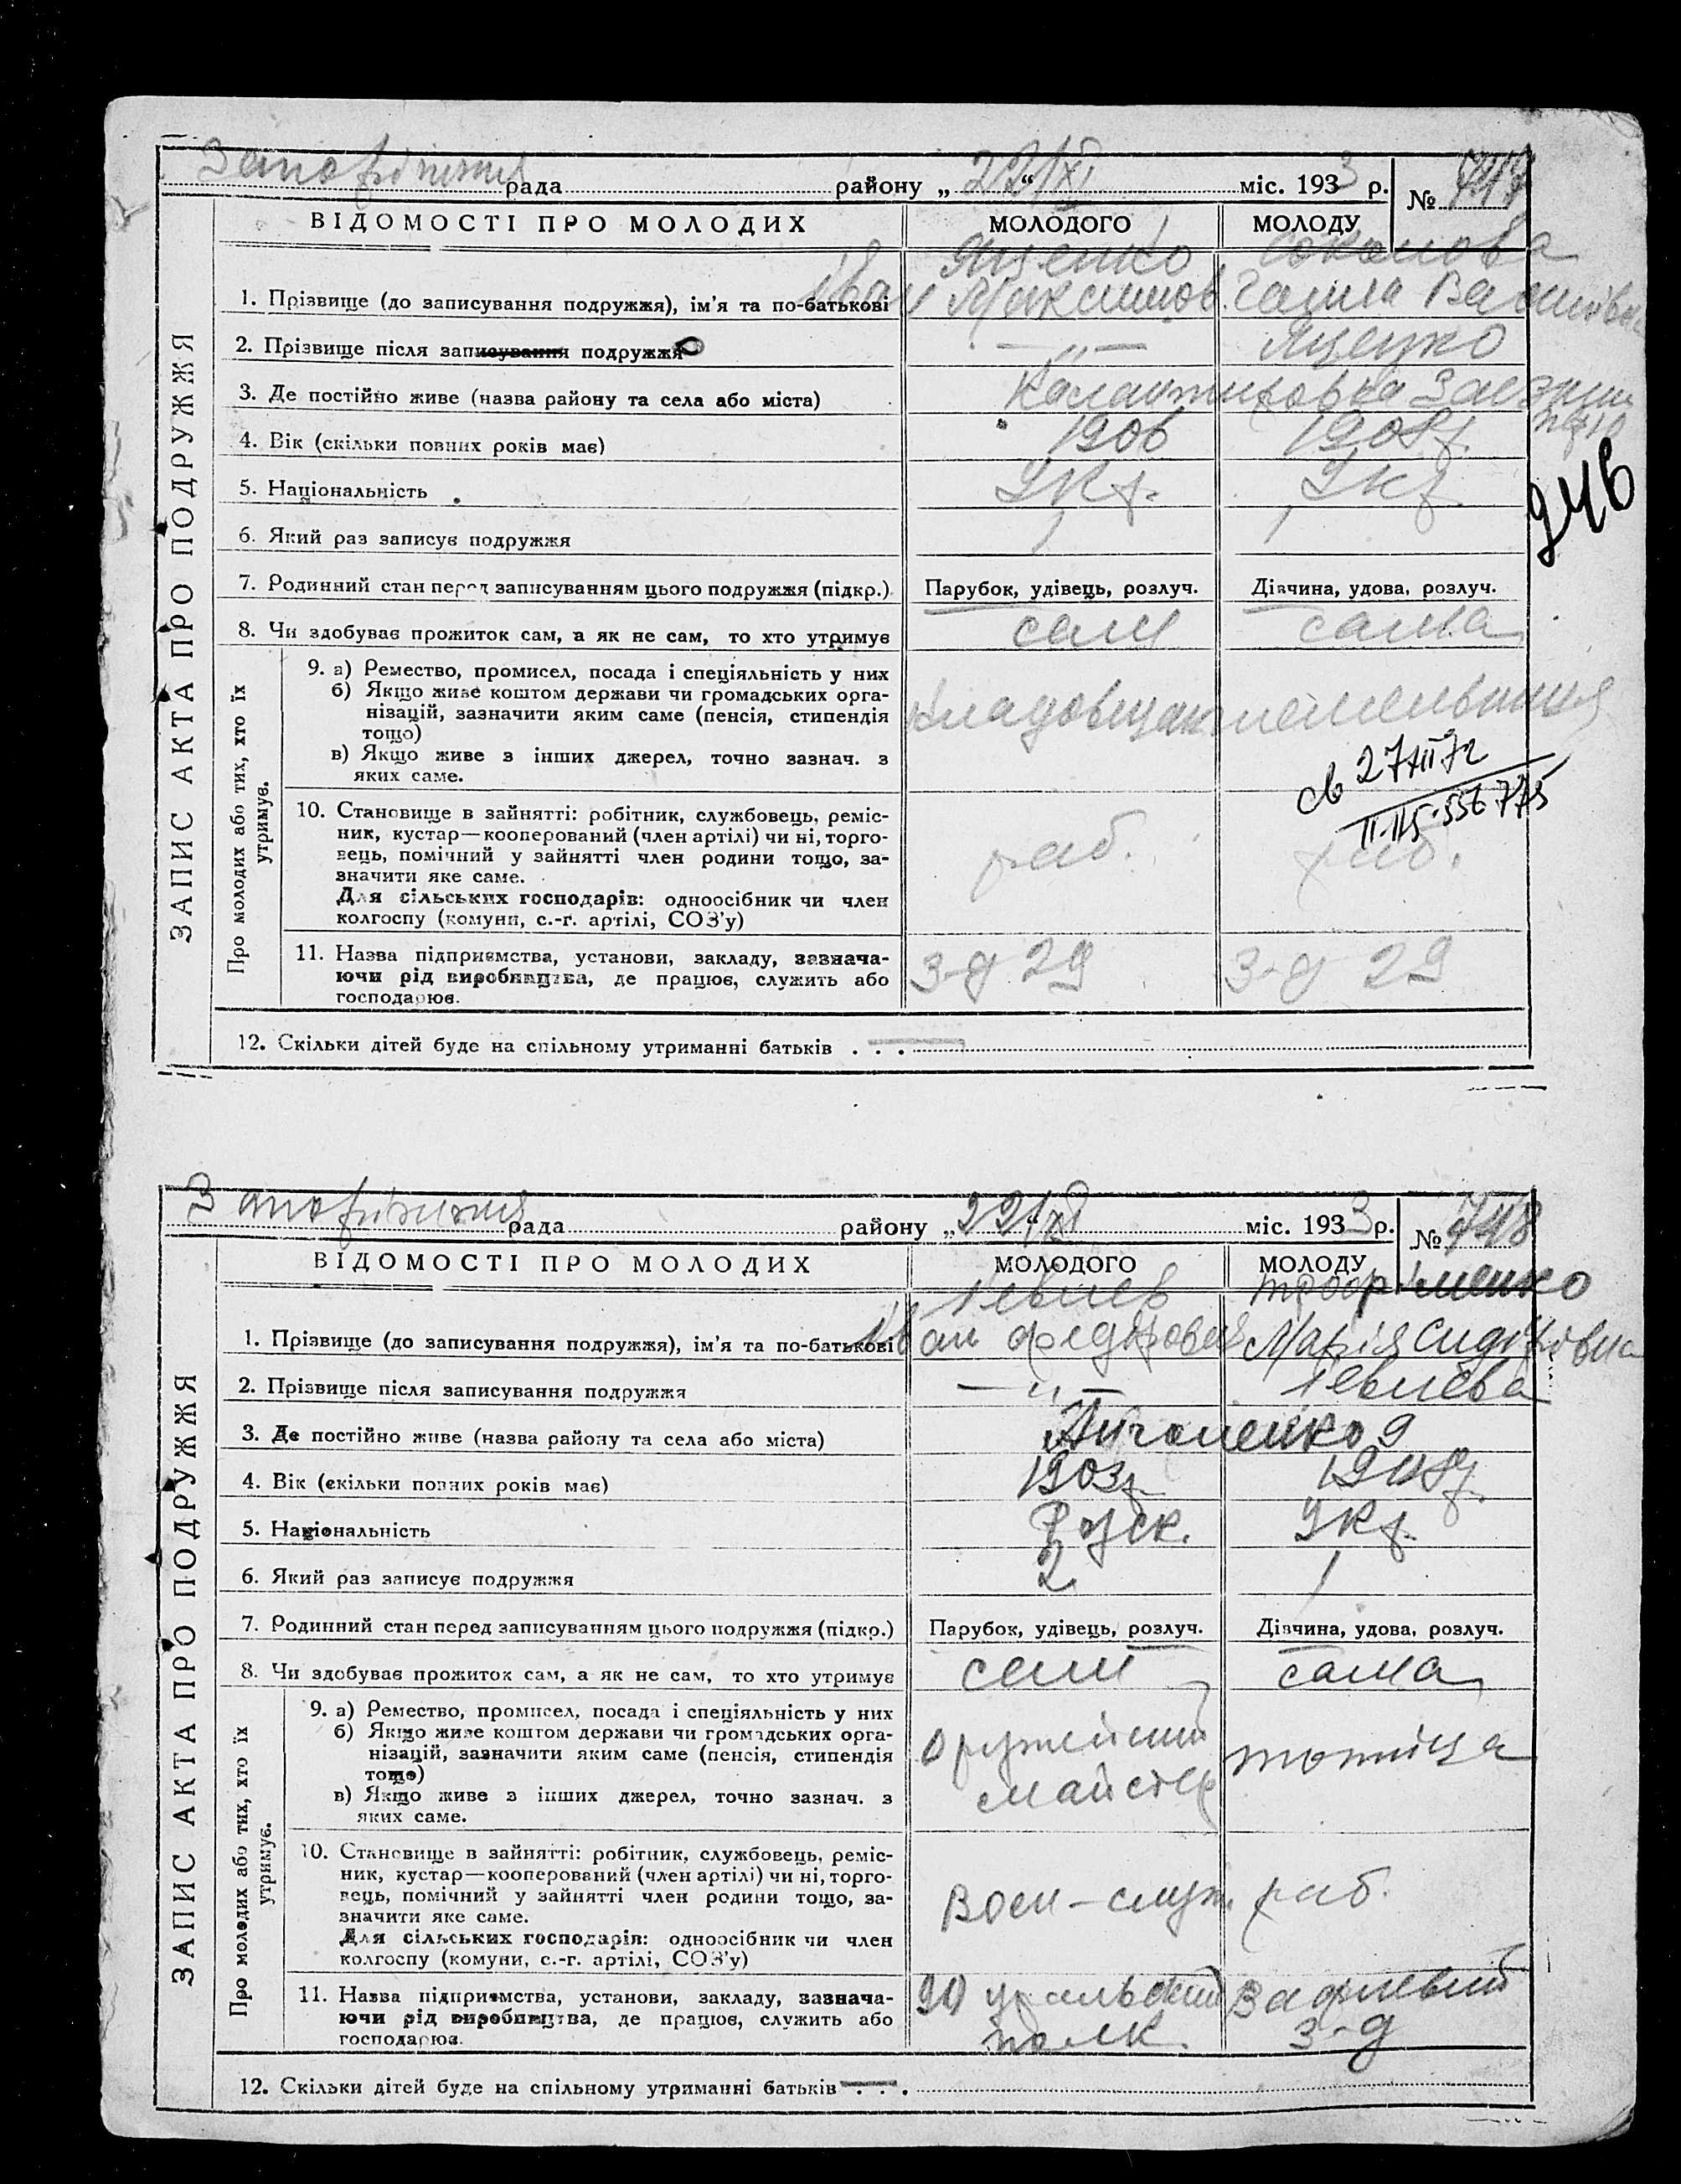 Запоріжжя рада району „ 22/XI “ міс. 1933 р. № 747
ВІДОМОСТІ ПРО МОЛОДИХ МОЛОДОГО МОЛОДУ
Яценко
1. Прізвище (до записування подружжя), ім'я та по-батькові Іван Максимов. Галина
2. Прізвище після записування подружжя — „ — Яценко
3. Де постійно живе (назва району та села або міста)
4. Вік (скільки повних років має) 1906 1908 р.
5. Національність Укр. Укр.
6. Який раз записує подружжя 1 1
246
7. Родинний стан перед записуванням цього подружжя (підкр.) Парубок, удівець, розлуч. Дівчина, удова, розлуч.
8. Чи здобуває прожиток сам, а як не сам, то хто утримує сам сама
ЗАПИС АКТА ПРО ПОДРУЖЖЯ
Про молодих або тих, хто їх утримує.
9. а) Ремество, промисел, посада і спеціяльність у них
б) Якщо живе коштом держави чи громадських орга-
нізацій, зазначити яким саме (пенсія, стипендія
тощо)
в) Якщо живе з інших джерел, точно зазнач. з
яких саме.
кладовщик
св 27/II 72
II-ЖБ-556775
10. Становище в зайнятті: робітник, службовець, реміс-
ник, кустар—кооперований (член артілі) чи ні, торго-
вець, помічний у зайнятті член родини тощо, за-
значити яке саме.
Для сільських господарів: одноосібник чи член
колгоспу (комуни, с.-г. артілі, СОЗ'у)
раб. раб.
11. Назва підприємства, установи, закладу, зазнача-
ючи рід виробництва, де працює, служить або
господарює.
з-д 29 з-д 29
12. Скільки дітей буде на спільному утриманні батьків . . . —
Запоріжжя рада району „ 22/XI “ міс. 1933 р. № 748
ВІДОМОСТІ ПРО МОЛОДИХ МОЛОДОГО МОЛОДУ
1. Прізвище (до записування подружжя), ім'я та по-батькові Іван Федорович Марія Сидорівна
2. Прізвище після записування подружжя — „ —
3. Де постійно живе (назва району та села або міста) 9
4. Вік (скільки повних років має) 1903 р. 1908 р.
5. Національність Руск. Укр.
6. Який раз записує подружжя 2 1
7. Родинний стан перед записуванням цього подружжя (підкр.) Парубок, удівець, розлуч. Дівчина, удова, розлуч.
8. Чи здобуває прожиток сам, а як не сам, то хто утримує сам сама
ЗАПИС АКТА ПРО ПОДРУЖЖЯ
Про молодих або тих, хто їх утримує.
9. а) Ремество, промисел, посада і спеціяльність у них
б) Якщо живе коштом держави чи громадських орга-
нізацій, зазначити яким саме (пенсія, стипендія
тощо)
в) Якщо живе з інших джерел, точно зазнач. з
яких саме.
оружейний
майстер
10. Становище в зайнятті: робітник, службовець, реміс-
ник, кустар—кооперований (член артілі) чи ні, торго-
вець, помічний у зайнятті член родини тощо, за-
значити яке саме.
Для сільських господарів: одноосібник чи член
колгоспу (комуни, с.-г. артілі, СОЗ'у)
Воен-служ. раб.
11. Назва підприємства, установи, закладу, зазнача-
ючи рід виробництва, де працює, служить або
господарює.
90 уральский
полк. з-д
12. Скільки дітей буде на спільному утриманні батьків — . . .